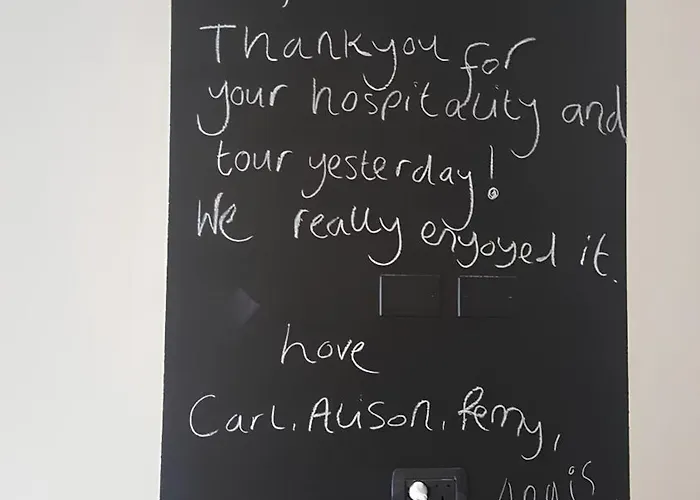 Thankyou for
your hospitality and
tour yesterday!
We really enjoyed it.
Love
Carl, Alison,